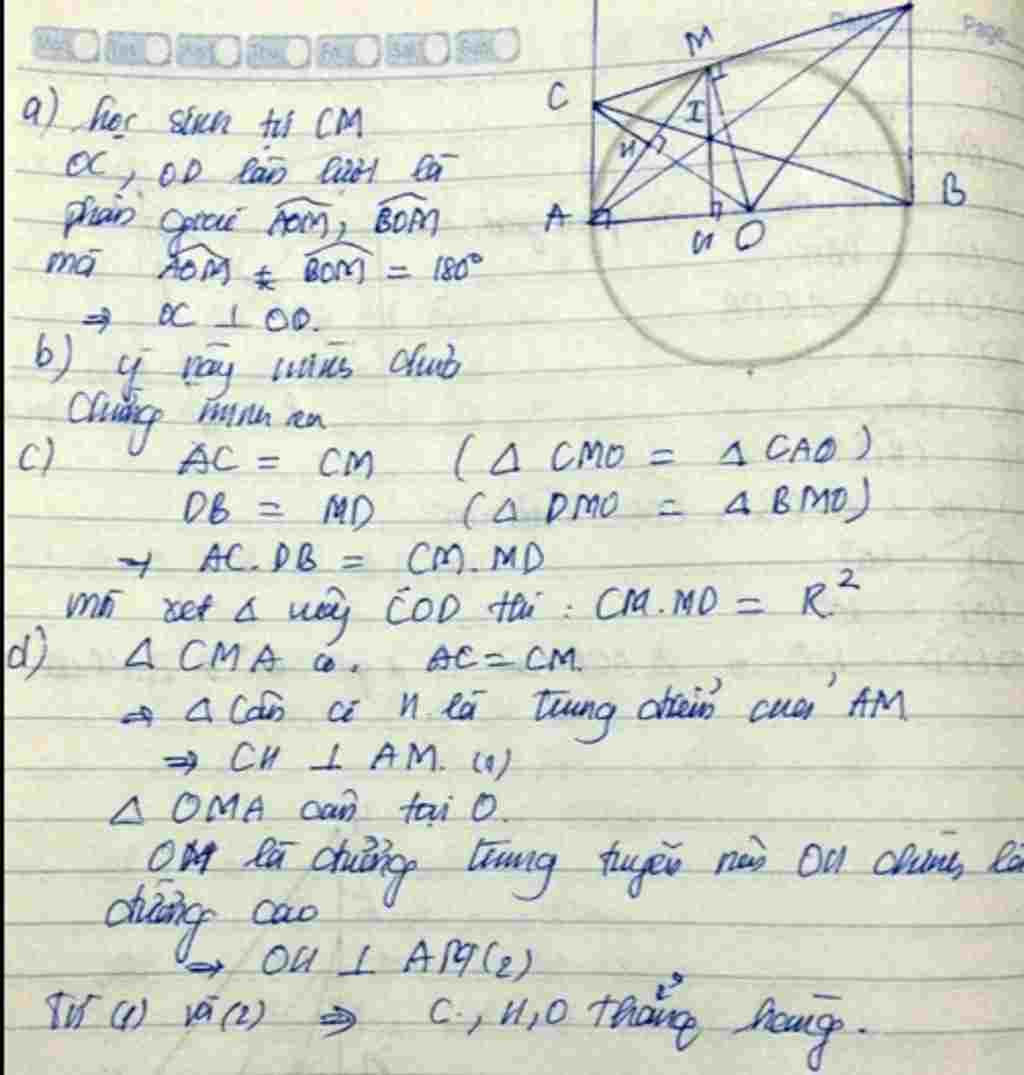 Mon Tue Wed Thu Fri Sat Sun
Page
M
C
I
H
A
H
O
B
a) học sinh tự CM
OC, OD lần lượt là
phân giác AOM, BOM
mà AOM + BOM = 180°
⇒ OC ⊥ OD.
b) ý này mình chưa
chứng minh ra
c) AC = CM (Δ CMO = Δ CAO)
DB = MD (Δ DMO = Δ BMO)
→ AC.DB = CM.MD
mà xét Δ này COD thì : CM.MD = R²
d) Δ CMA có. AC = CM.
⇒ Δ cân có H là trung điểm của AM
⇒ CH ⊥ AM. (1)
Δ OMA cân tại O.
OH là đường trung tuyến nên OH chính là
đường cao
⇒ OH ⊥ AM (2)
Từ (1) và (2) ⇒ C, H, O thẳng hàng.